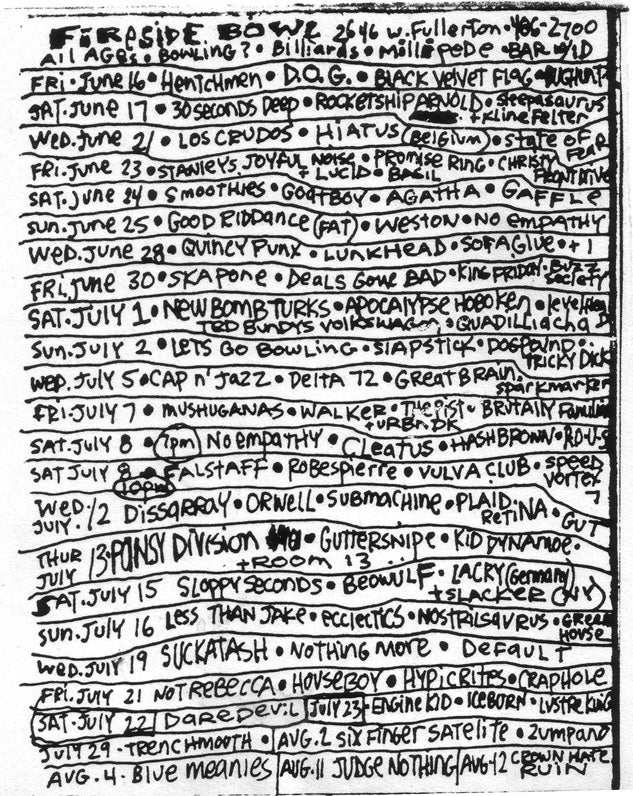 FIRESIDE BOWL 2646 W. Fullerton • 486-2700
All Ages • BOWLING? • Billiards • Millipede • BAR W/ID
FRI • June 16 • Hentchmen • D.O.G. • BLACK Velvet Flag • BUGHUNT
SAT. June 17 • 30 seconds Deep • ROCKETSHIP ARNOLD • sleepasaurus
+ Kline Felter
WED. June 21 • LOS CRUDOS • HIATUS (BELGIUM) • STATE OF
FEAR
FRI. June 23 • STANLEYS JOYFUL NOISE • PROMISE RING • CHRISTY
+ LUCID • BASIL FRONT DRIVE
SAT. June 24 • Smoothies • GOATBOY • AGATHA • GAFFLE
SUN. June 25 • GOOD RIDDANCE (FAT) • WESTON • NO EMPATHY
WED. June 28 • QUINCY PUNX • LUNKHEAD • SOFA GLUE • + 1
FRI. June 30 • SKAPONE • DEALS GONE BAD • KING FRIDAY • BUZZ
society
SAT. JULY 1 • NEW BOMB TURKS • APOCALYPSE HOBOKEN • level
TED BUNDYS VOLKSWAGN • QUADILLIACHA
SUN. JULY 2 • LETS GO BOWLING • SLAPSTICK • DOGPOUND •
TRICKY DICK
WED. JULY 5 • CAP n' JAZZ • DELTA 72 • GREAT BRAIN
sparkmarker
FRI. JULY 7 • MUSHUGANAS • WALKER • THE PIST • BRUTALLY Familiar
+ URBN DK
SAT. JULY 8 • 7pm NO empathy • Cleatus • HASHBROWN • R.D.U.S
SAT JULY 8 • FALSTAFF • ROBESPIERRE • VULVA CLUB • SPEED
10pm VORTEX
WED JULY 12 DISSARRAY • ORWELL • SUBMACHINE • PLAID
RETINA • GUT
7
THUR JULY 13 • PANSY DIVISION • GUTTERSNIPE • KID DYNAMOE •
+ ROOM 13
SAT. JULY 15 SLOPPY SECONDS • BEOWULF • LACRY (Germany)
+ SLACKER (NY)
SUN. JULY 16 LESS THAN JAKE • ECCLECTICS • NOSTRILSAURUS • GREEN
HOUSE
WED. JULY 19 SUCKATASH • NOTHING MORE • DEFAULT
FRI. JULY 21 NOT REBECCA • HOUSEBOY • HYPICRITES • CRAPHOLE
SAT. JULY 22 DAREDEVIL JULY 23 • ENGINE KID • ICEBURN • LUSTRE KING
JULY 29 • TRENCHMOUTH • AUG. 2 SIX FINGER SATELITE • ZUMPANO
AUG. 4 • BLUE MEANIES AUG. 11 JUDGE NOTHING AUG 12 CROWN HATE
RUIN